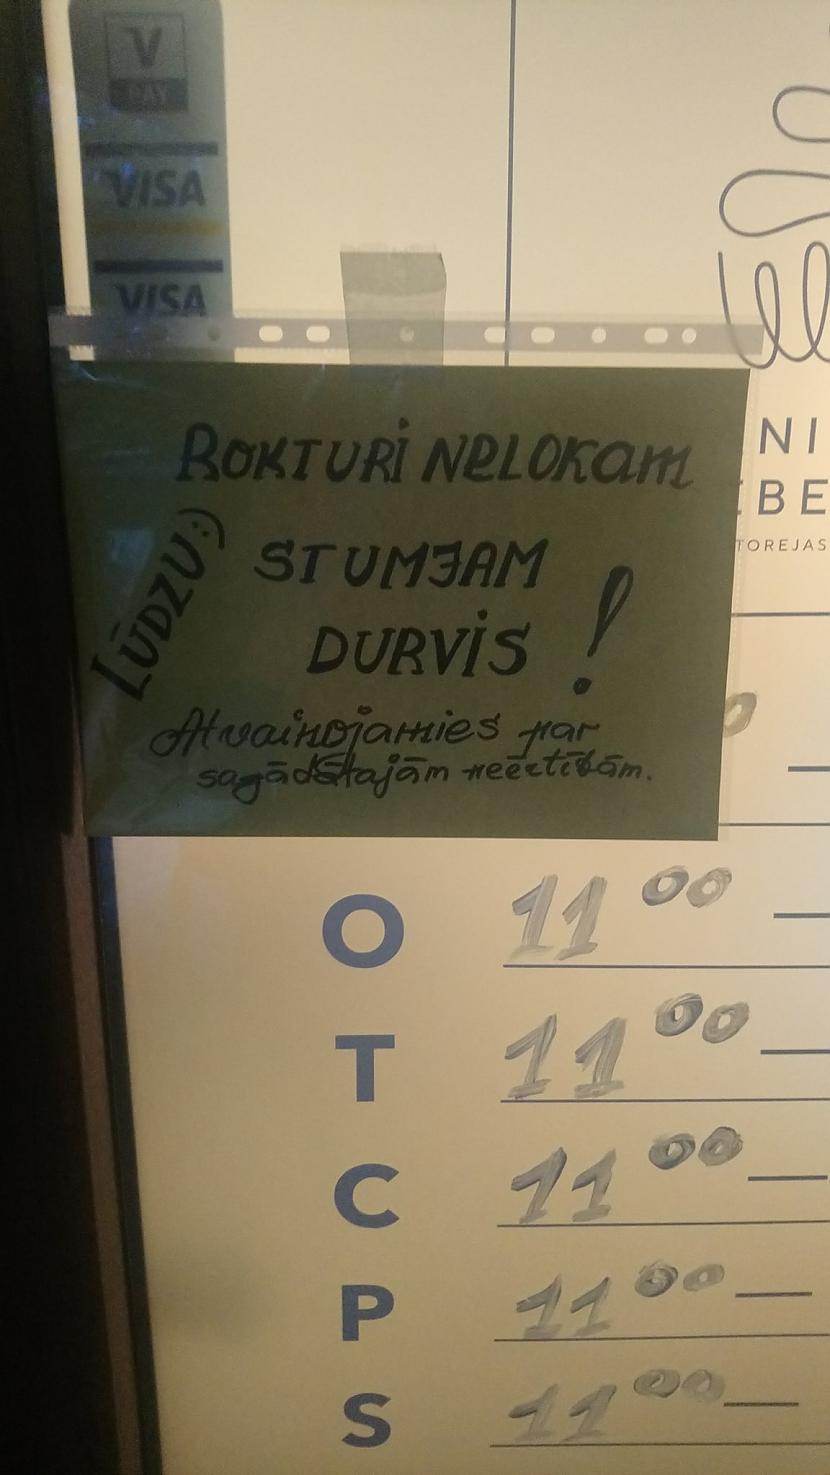 V
PAY
VISA
VISA
NI
EBE
TOREJAS
ROKTURI NELOKAM
LŪDZU :)
STUMJAM
DURVIS !
Atvainojamies par
sagādātajām neērtībām.
O 11 00 —
T 11 00 —
C 11 00 —
P 11 00 —
S 11 00 —